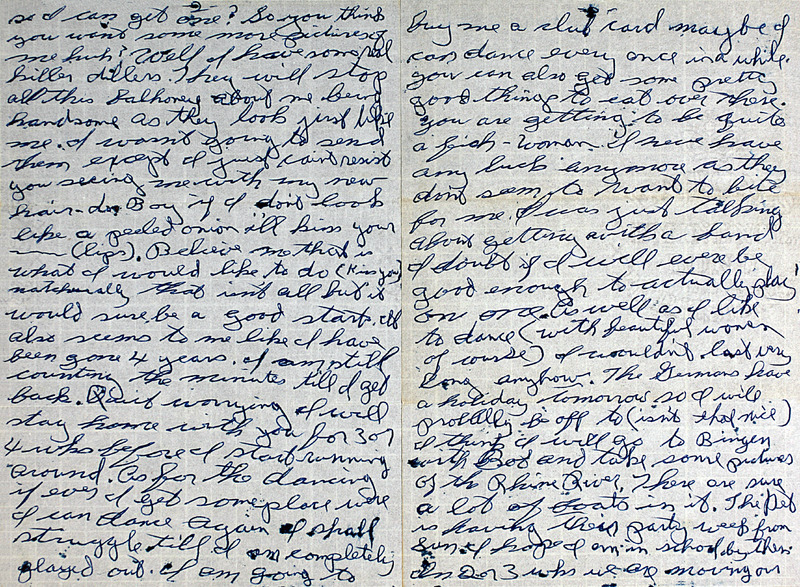 so I can get one? So you think
you want some more pictures of
me huh? Well I have some real
killer dillers. They will stop
all this balhoney about me being
handsome as they look just like
me. I wasn't going to send
them except I just can't resist
you seeing me with my new
hair-do. Boy if I don't look
like a peeled onion I'll kiss your
—— (lips). Believe me that is
what I would like to do (kiss you)
naturally that isn't all but it
would sure be a good start. It
also seems to me like I have
been gone 4 years. I am still
counting the minutes till I get
back. Quit worrying I will
stay home with you for 3 or
4 wks before I start running
around. As for the dancing
if ever I get some place were
I can dance again I shall
struggle till I am completely
played out. I am going to
buy me a club card maybe I
can dance every once in a while.
You can also get some pretty
good things to eat over there.
You are getting to be quite
a fish-woman. I never have
any luck anymore as they
dont seem to want to bite
for me. I was just talking
about getting with a band
I doubt if I will ever be
good enough to actually play
in one. As well as I like
to dance (with beautiful women
of course) I wouldn't last very
long anyhow. The Germans have
a holiday tomorrow so I will
probally be off to (isn't that nice)
I think I will go to Bingen
with Bob and take some pictures
of the Rhine River. There are sure
a lot of boats in it. The Det
is having their party week from
Sun. I hope I am in school by then.
In 2 or 3 wks we are moving our